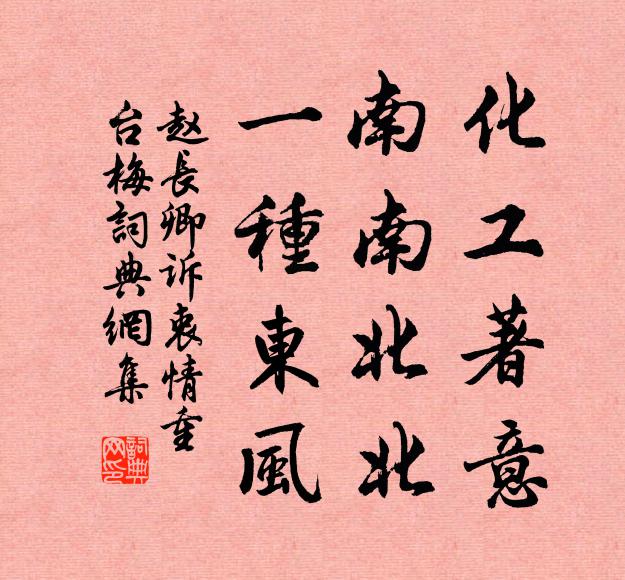 化工著意
南南北北
一種東風
赵長卿訴衷情重
台梅詞典網集
詞典网印